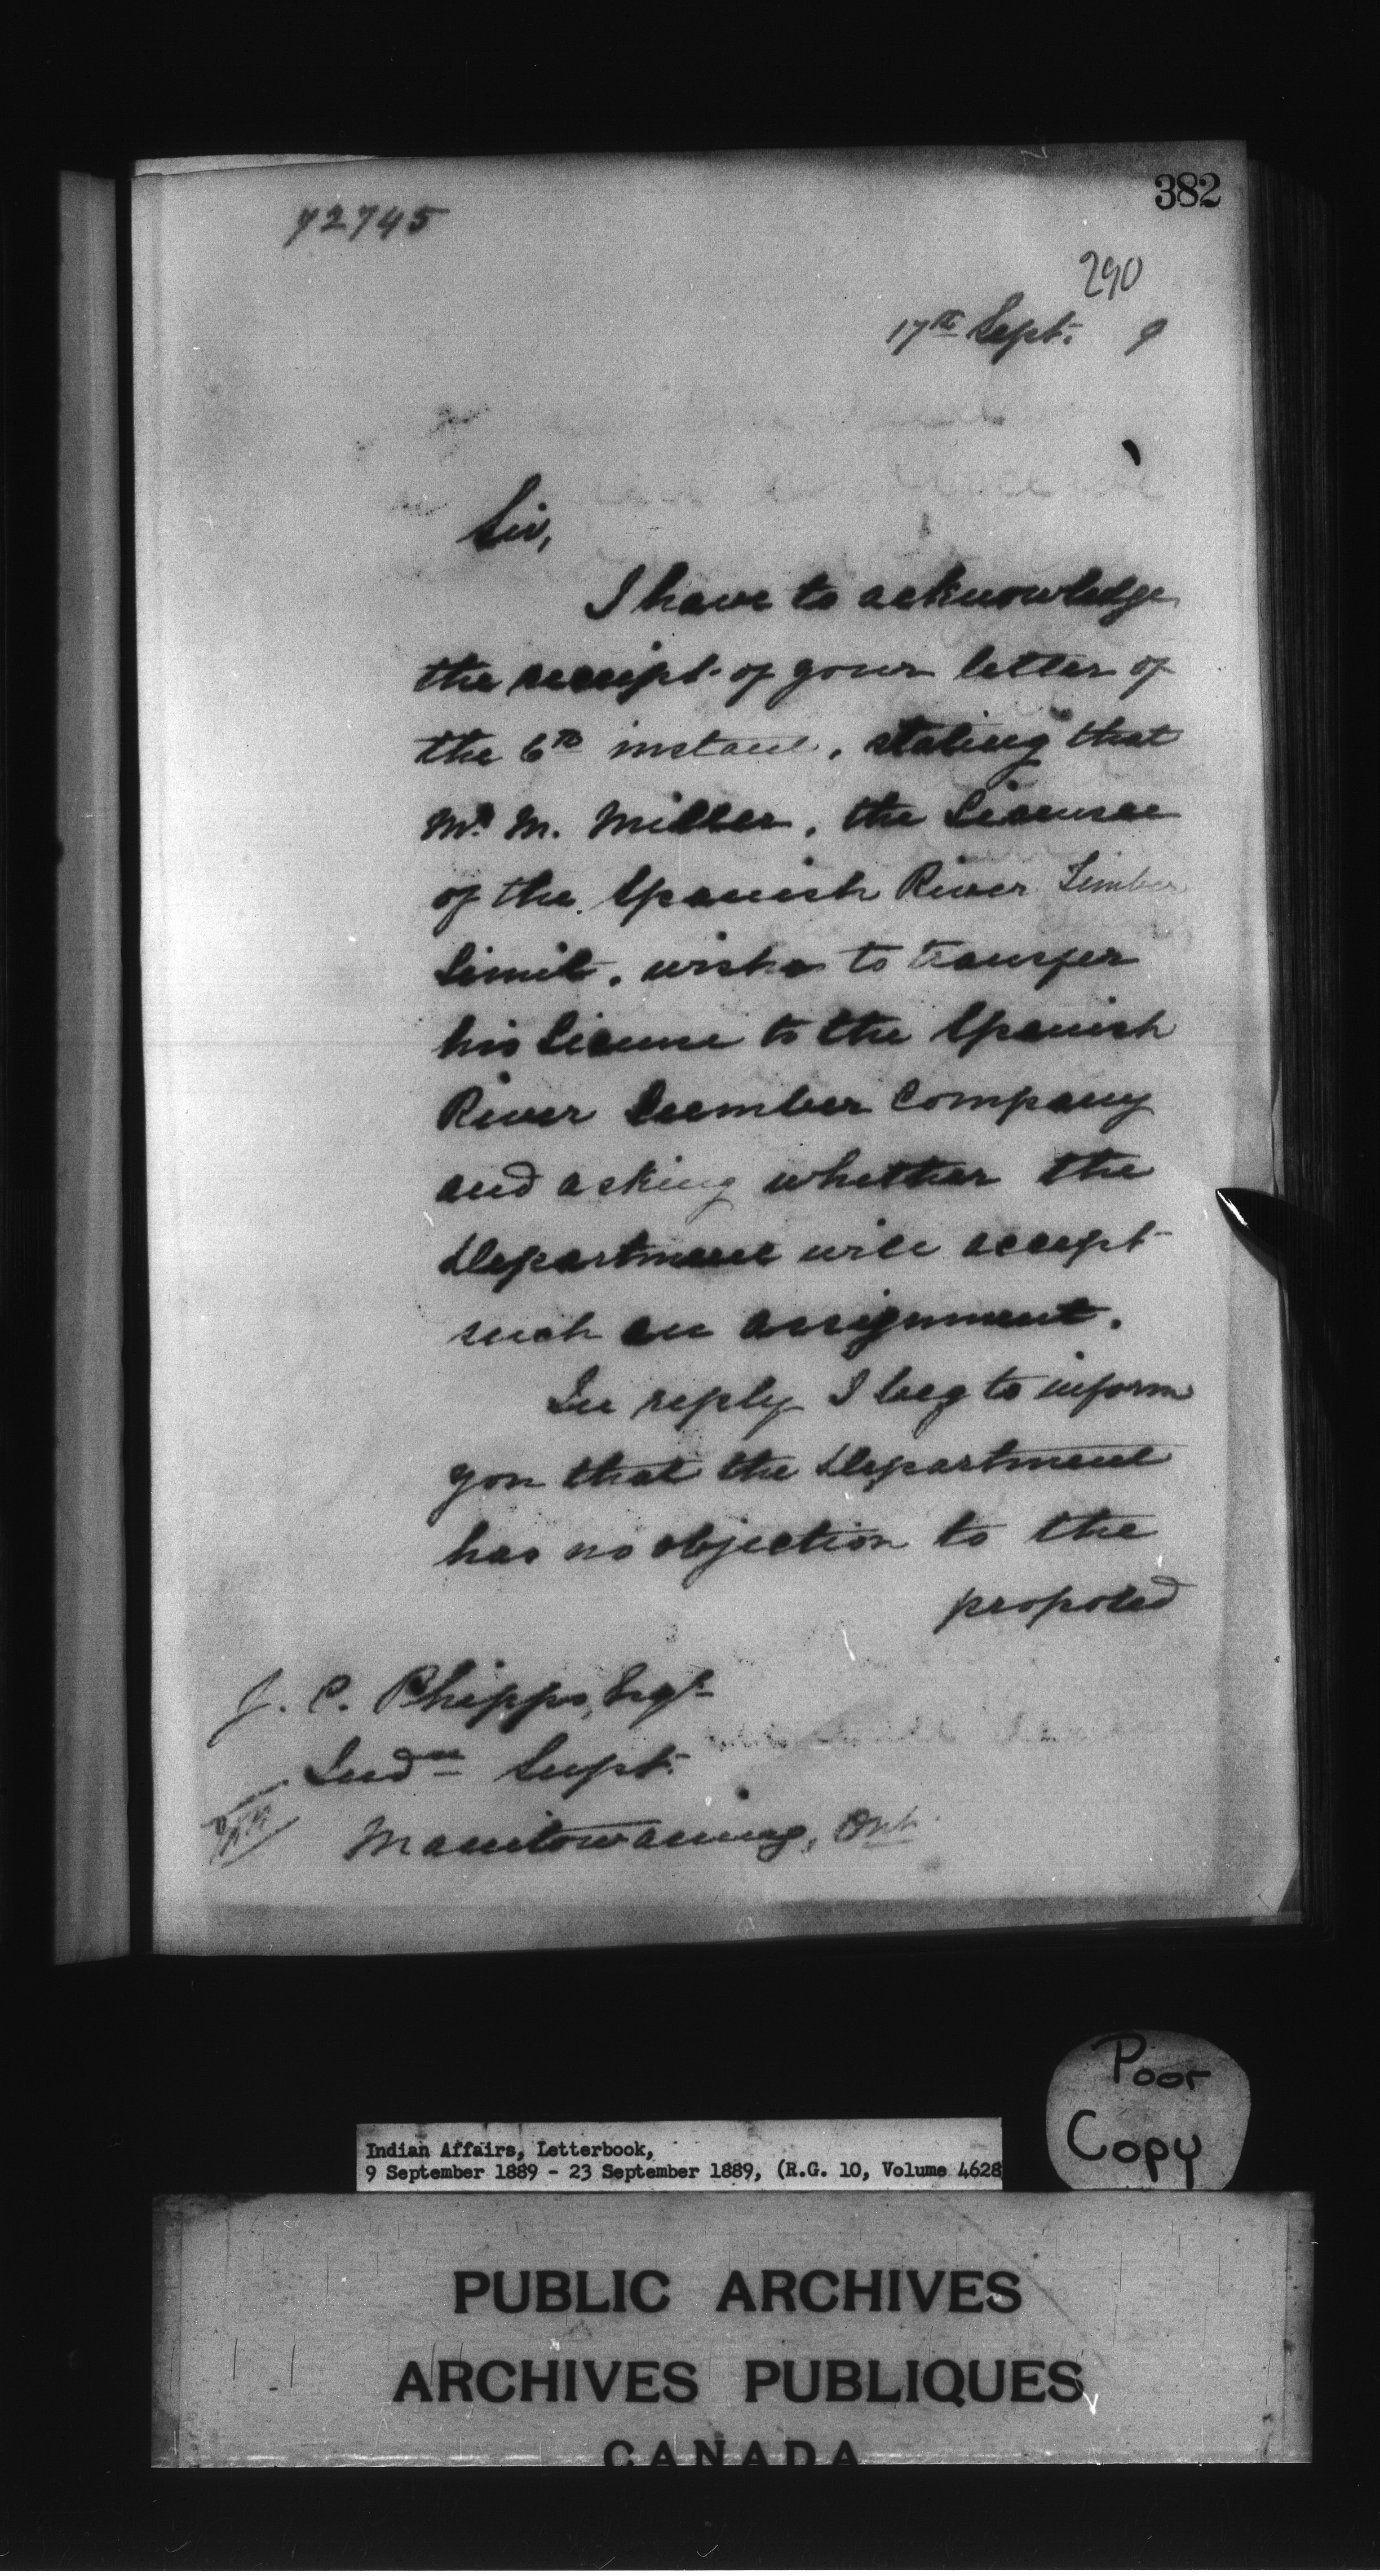 382
72745
290
17th Sept. 9
Sir,
I have to acknowledge
the receipt of your letter of
the 6th instant, stating that
Mr. M. Miller, the Licensee
of the Spanish River Timber
Limit, wishes to transfer
his License to the Spanish
River Lumber Company
and asking whether the
Department will accept
such an assignment.
In reply I beg to inform
you that the Department
has no objection to the
proposed
J. C. Phipps, Esqr
Indn Supt.
Manitowaning, Ont
Poor
Copy
Indian Affairs, Letterbook,
9 September 1889 - 23 September 1889, (R.G. 10, Volume 4628
PUBLIC ARCHIVES
ARCHIVES PUBLIQUES
CANADA